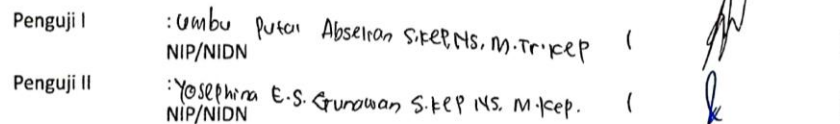 Penguji I : Umbu Putal Abselran S.KEP, NS, M.Tr.Kep (
NIP/NIDN
Penguji II : Yosephina E.S. Gunawan S.KEP NS. M.Kep. (
NIP/NIDN